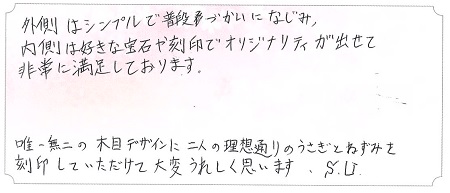 外側はシンプルで普段づかいになじみ,
内側は好きな宝石や刻印でオリジナリティが出せて
非常に満足しております。
唯一無二の木目デザインに二人の理想通りのうさぎとねずみを
刻印していただけて大変うれしく思います、S.U.